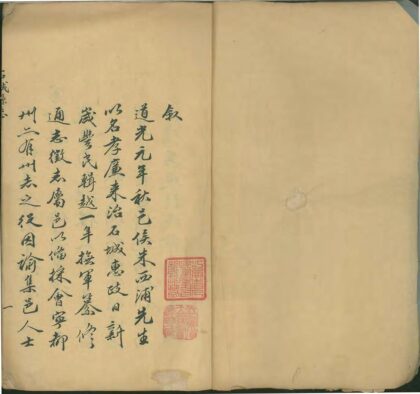 敘
道光元年秋邑侯朱西浦先生
以名孝廉来治石城惠政日新
歲豐民輯越一年撫軍纂修
通志徵志屬邑以備採會寧都
州亦有州志之役因諭集邑人士
石城縣志
一